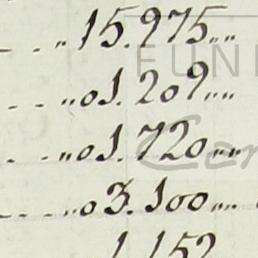 15.975
01.209
01.720
03.100
1.152
FUN
Cer